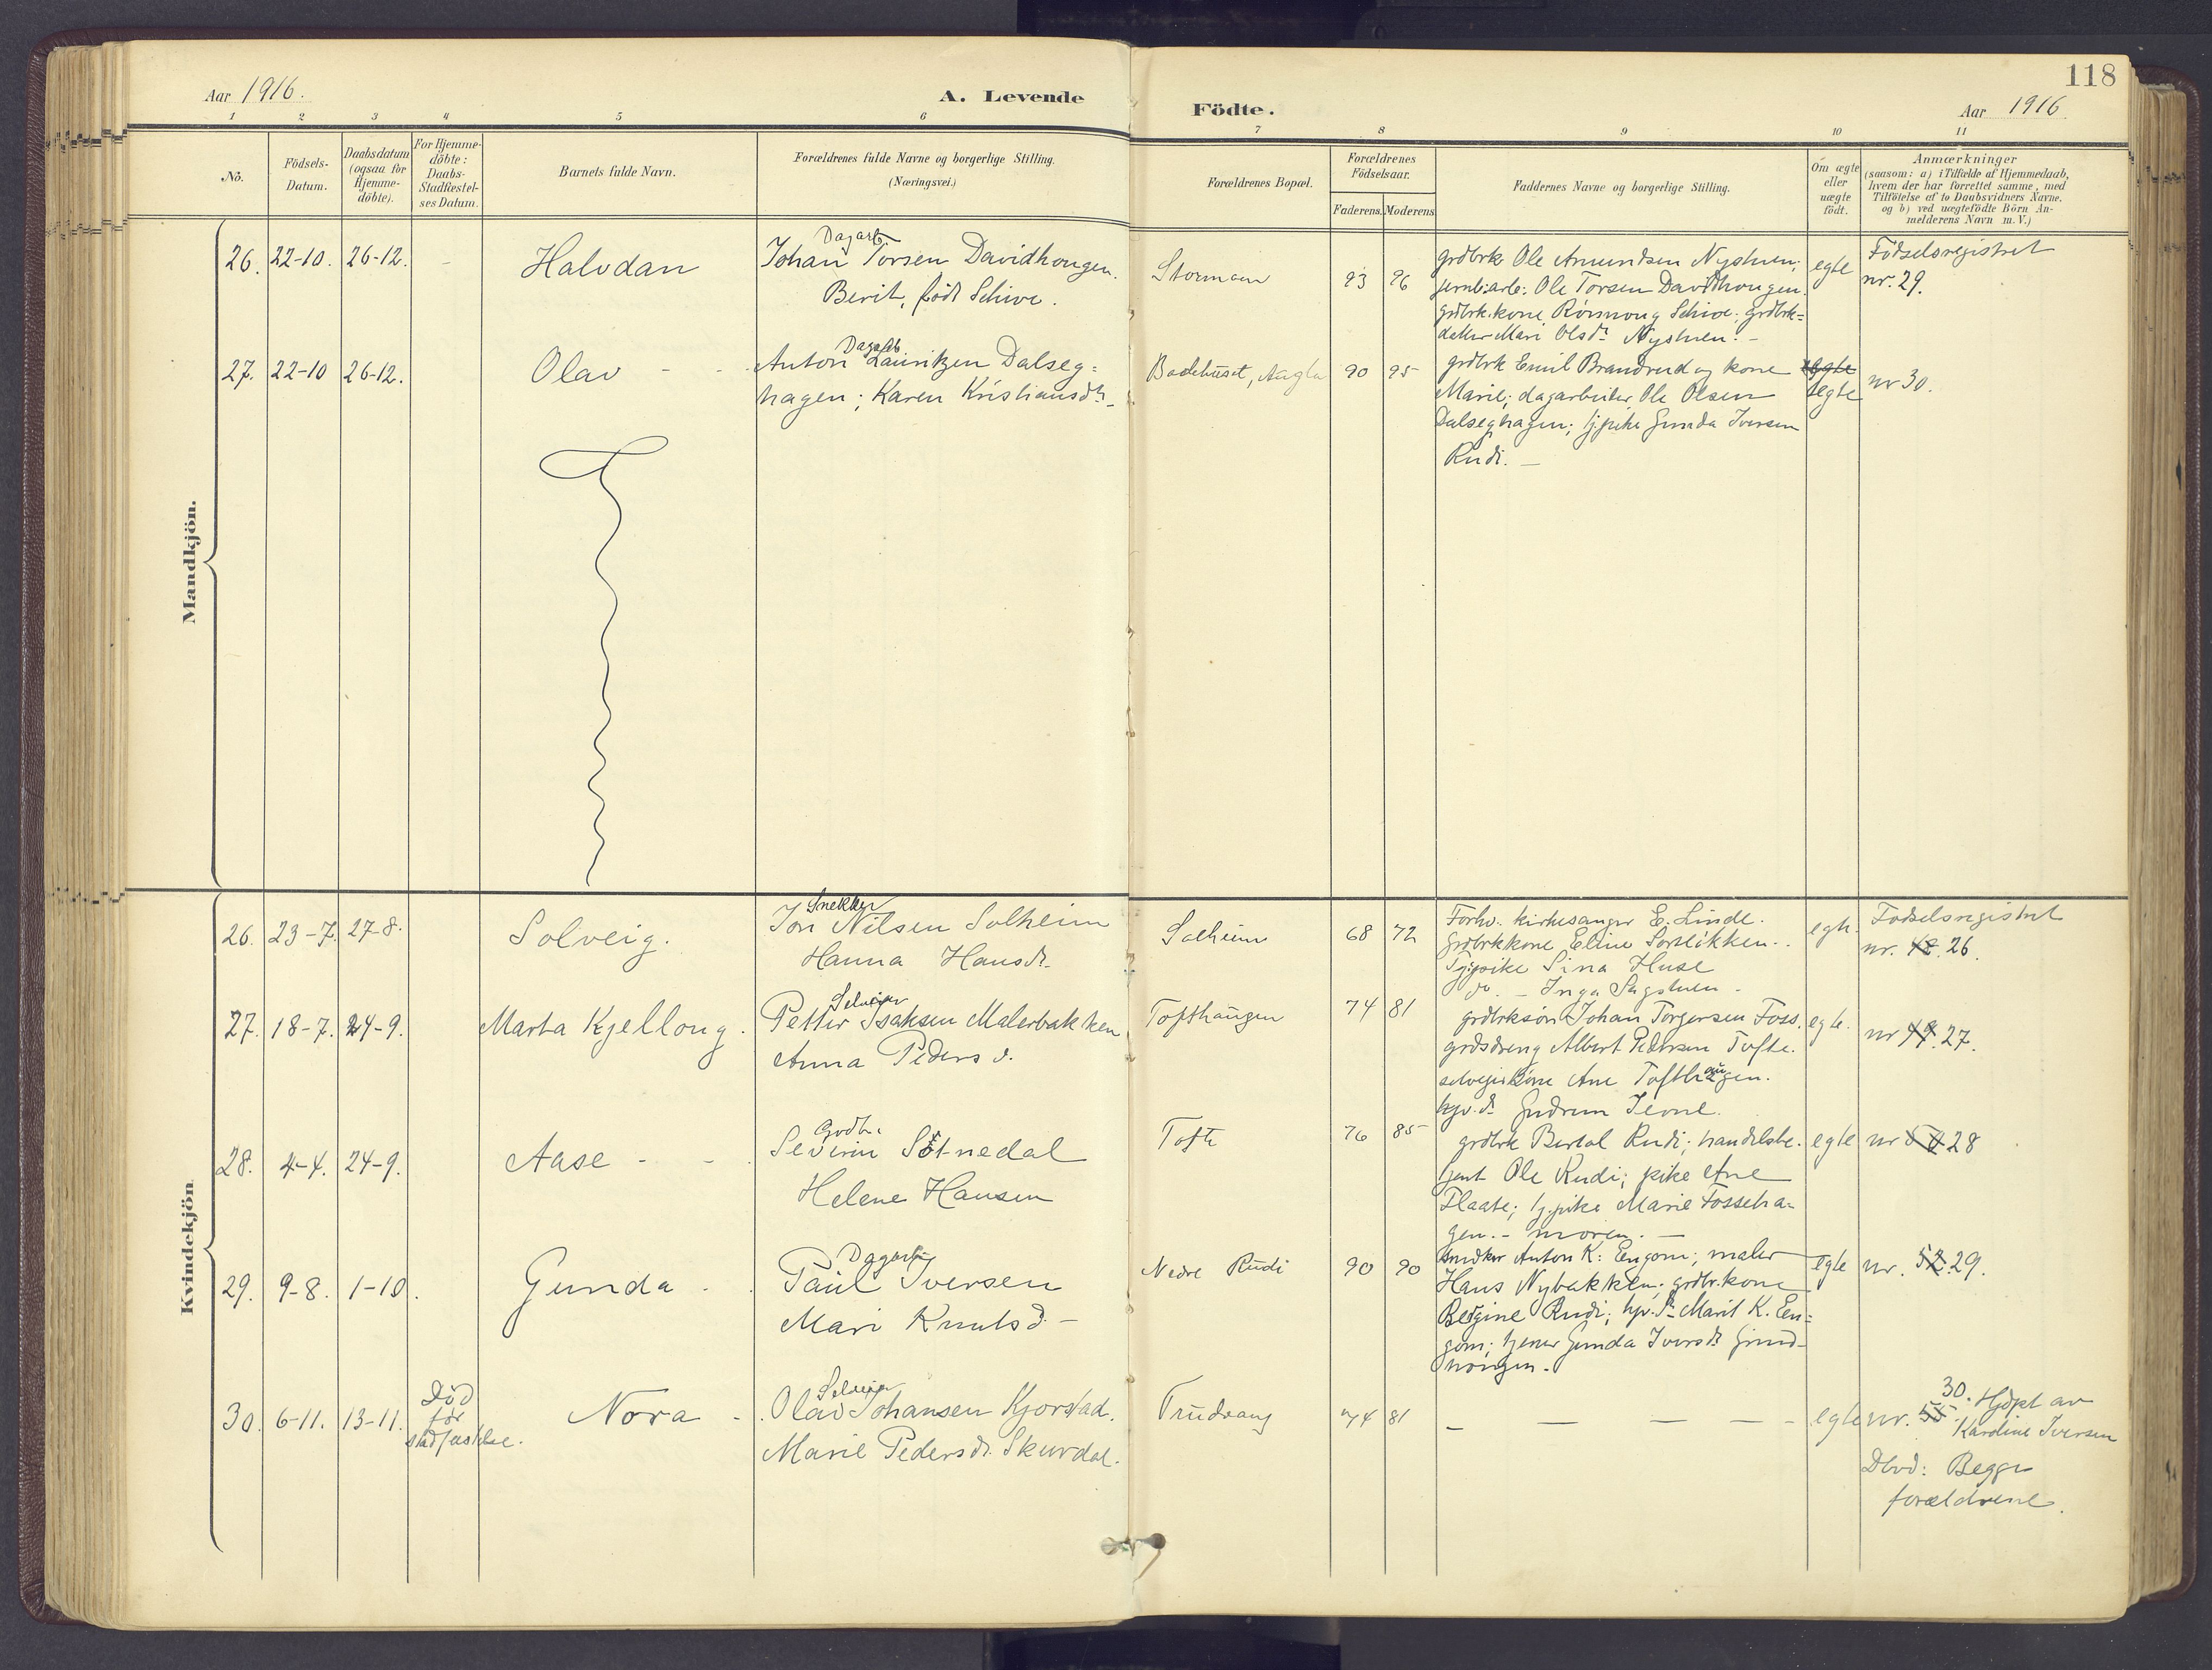 118
Aar 1916.
A. Levende Födte.
Aar 1916
1 2 3 4 5 6 7 8 9 10 11
No.
Födsels-Datum.
Daabsdatum (ogsaa for Hjemme-döbte).
For Hjemme-döbte: Daabs-Stadfæstel-ses Datum.
Barnets fulde Navn.
Forældrenes fulde Navne og borgerlige Stilling.
(Næringsvei.)
Forældrenes Bopæl.
Forældrenes Födselsaar.
Faderens. Moderens
Faddernes Navne og borgerlige Stilling.
Om ægte eller uægte födt.
Anmærkninger
(saasom: a) i Tilfælde af Hjemmedaab,
hvem der har forrettet samme, med
Tilföielse af to Daabsvidners Navne,
og b) ved uægtefödte Börn An-
melderens Navn m. V.)
Mandkjön.
26. 22-10. 26-12. Halvdan
Dagarb
Johan Torsen Davidhougen.
Berit, født Schive.
93 96
grdbrk Ole Amundsen Nystuen;
jernb:arb: Ole Torsen Davidhougen.
grdbrk.kone Rønnoug Schive; grdbrk=
datter Mari Olsdr Nystuen. -
egte
Fødselsregistret
nr. 29.
27. 22-10 26-12. Olav
Dagarb
Anton Lauritzen Dalseg=
hagen; Karen Kristiansdr
Badehuset, 90 95
grdbrk Emil Brandrud og kone
Marie; dagarbeider Ole Olsen
Dalseghagen; tj.pike Gunda Iversen
Rudi. -
egte
nr 30.
Kvindekjön
26. 23-7. 27-8. Solveig.
Snekker
Jon Nilsen Solheim
Hanna Hansdr.
Solheim 68 72
Forhv. kirkesanger E. Linde.
Grdbrkkone Eline Sorsløkken.
Tj.pike Sina Huse
do. - Inga Sagstuen -
egte.
Fødselsregistret
nr. 48. 26.
27. 18-7. 24-9. Marta Kjellong.
Selveier
Petter Isaksen Malerbakken
Anna Pedersd.
Tofthaugen 74 81
grdbrksøn Johan Torgersen Foss.
grdsdreng Albert Pedersen Tofte.
selveierkone Ane Tofthaugen.
hjv. d. Gudrun Tevne.
egte.
nr 49. 27.
28. 4-4. 24-9. Aase
Severin Sötnedal
Helene Hansen
Tofte 76 85
grdbrk Bertal Rudi; handelsbe-
tjent Ole Rudi; pike Ane
Flaate; tj.pike Marie Fosseha=
gen. - moren. -
egte
nr 28
29. 9-8. 1-10. Gunda
Dagarb
Paul Iversen
Mari Knutsd. -
Nedre Rudi 90 90
snedker Anton K: Engom; maler
Hans Nybakken; grdbr.kone
Bergine Rudi; hjv. dr Marit K. En=
gom; tjener Gunda Iversdr
egte
nr. 52. 29.
30. 6-11. 13-11. Död
før
stadfæstelse.
Nora
Selveier
Olav Johansen Kjorstad.
Marie Pedersdr. Skurdal.
Trudvang 74 81
- - - - -
egte
nr. 55. 30. Hjdpt av
Karoline Iversen
Dbvd: Begge
forældrene.